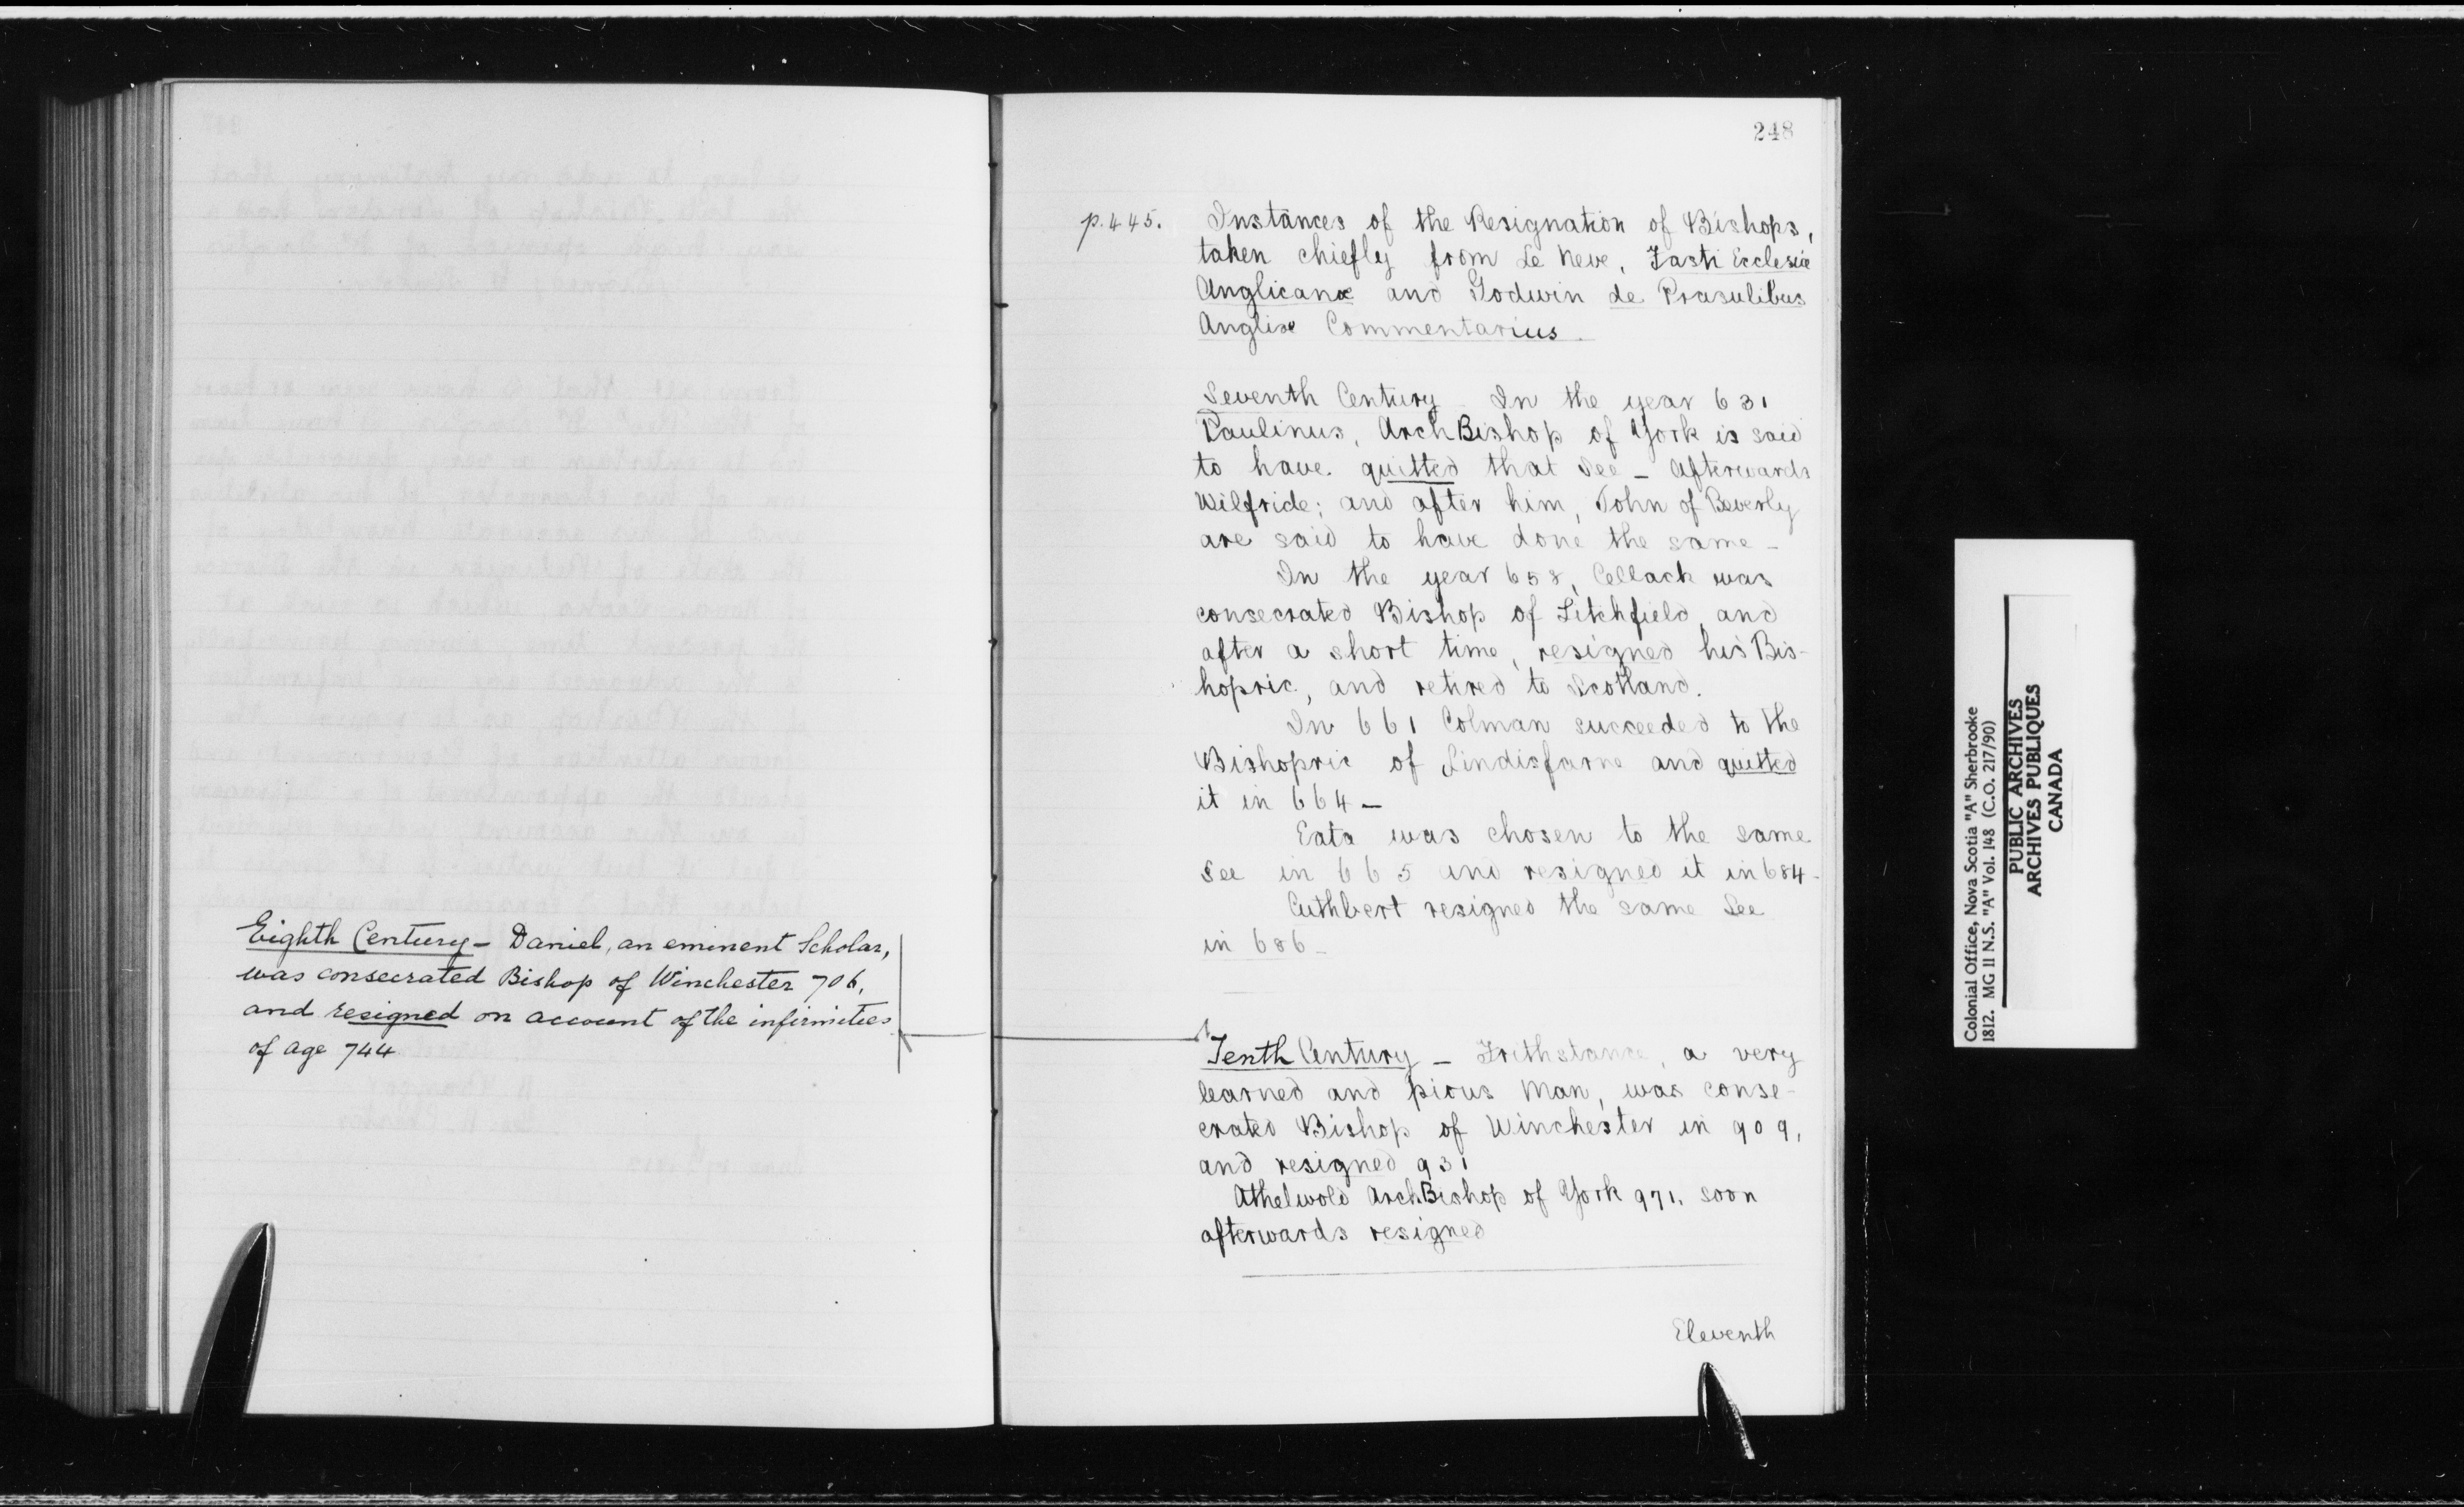 248
p. 445.
Instances of the Resignation of Bishops,
taken chiefly from Le Neve, Fasti Ecclesiæ
Anglicanæ and Godwin de Præsulibus
Angliæ Commentarius.
Seventh Century - In the year 631
Paulinus, ArchBishop of York is said
to have quitted that See - Afterwards
Wilfride; and after him, John of Beverly
are said to have done the same -
In the year 658, Cellack was
consecrated Bishop of Litchfield, and
after a short time, resigned his Bis-
hopric, and retired to Scotland.
In 661 Colman succeeded to the
Bishopric of Lindisfarne and quitted
it in 664 -
Eata was chosen to the same
See in 665 and resigned it in 684 -
Cuthbert resigned the same See
in 686 -
Eighth Century - Daniel, an eminent Scholar,
was consecrated Bishop of Winchester 706,
and resigned on account of the infirmities
of age 744
Tenth Century - Frithstance, a very
learned and pious Man, was conse-
crated Bishop of Winchester in 909,
and resigned 931
Athelwold ArchBishop of York 971, soon
afterwards resigned
Eleventh
Colonial Office, Nova Scotia "A" Sherbrooke
1812. MG 11 N.S. "A" Vol. 148 (C.O. 217/90)
PUBLIC ARCHIVES
ARCHIVES PUBLIQUES
CANADA